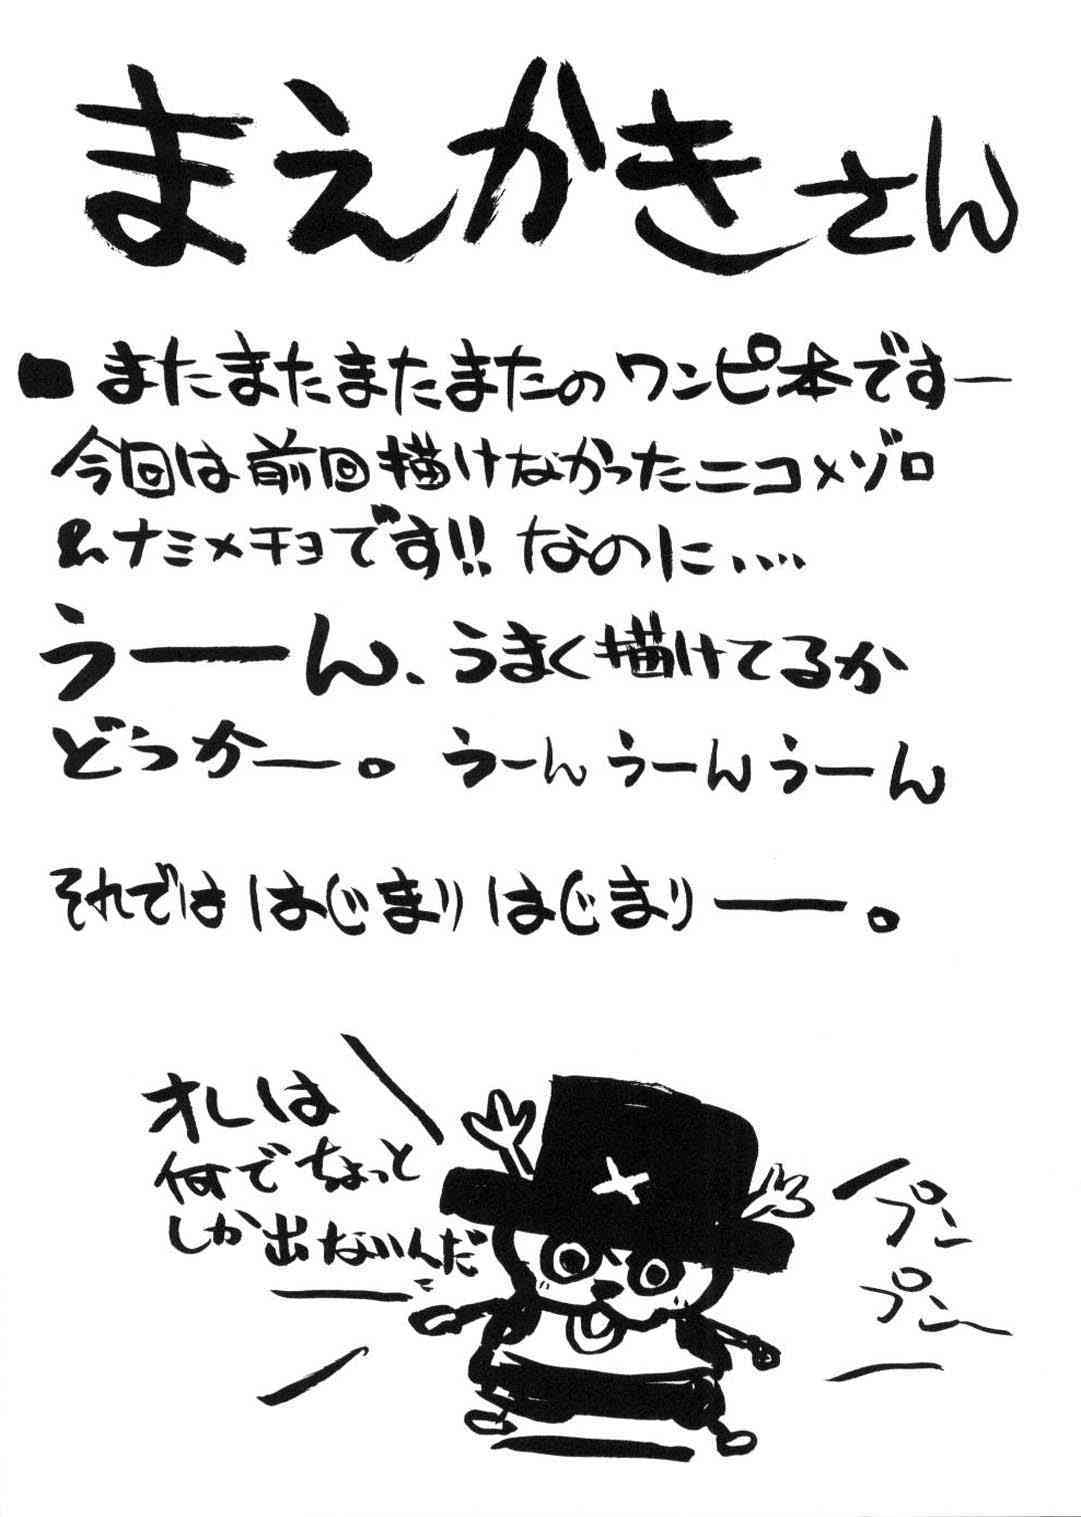 まえかきさん
■またまたまたまたのワンピ本ですー
今回は前回描けなかったニコ×ゾロ
&ナミ×チョです!!なのに‥‥
うーん、うまく描けてるか
どうかー。うーんうーんうーん
それでははじまりはじまりー。
オレは
何でちょっと
しか出ないんだ
プン
プン